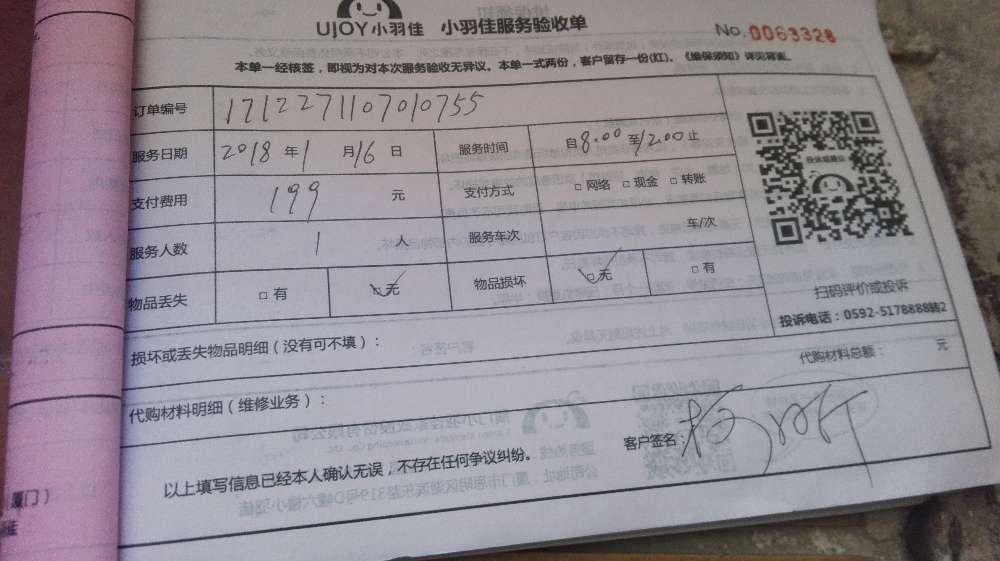 UJOY小羽佳 小羽佳服务验收单
No.0063328
本单一经核签，即视为对本次服务验收无异议。本单一式两份，客户留存一份(红)。《维保须知》详见背面。
订单编号 1712271107010755
服务日期 2018年1月16日 服务时间 自8:00至12:00止
支付费用 199 元 支付方式 □网络 □现金 □转账
服务人数 1 人 服务车次 车/次
物品丢失 □有 □无 物品损坏 □无 □有
投诉或建议
扫码评价或投诉
投诉电话：0592-5178888转2
损坏或丢失物品明细（没有可不填）：
代购材料明细（维修业务）： 代购材料总额： 元
以上填写信息已经本人确认无误，不存在任何争议纠纷。 客户签名：杨
厦门）